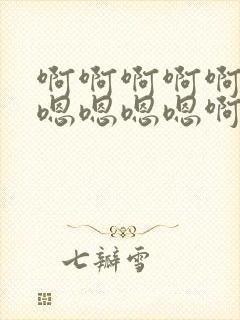 啊啊啊啊啊
嗯嗯嗯嗯啊
七瓣雪